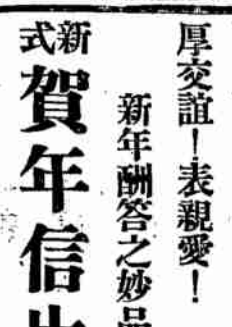 厚交誼！表親愛！
新年酬答之妙品
新式
賀年信片